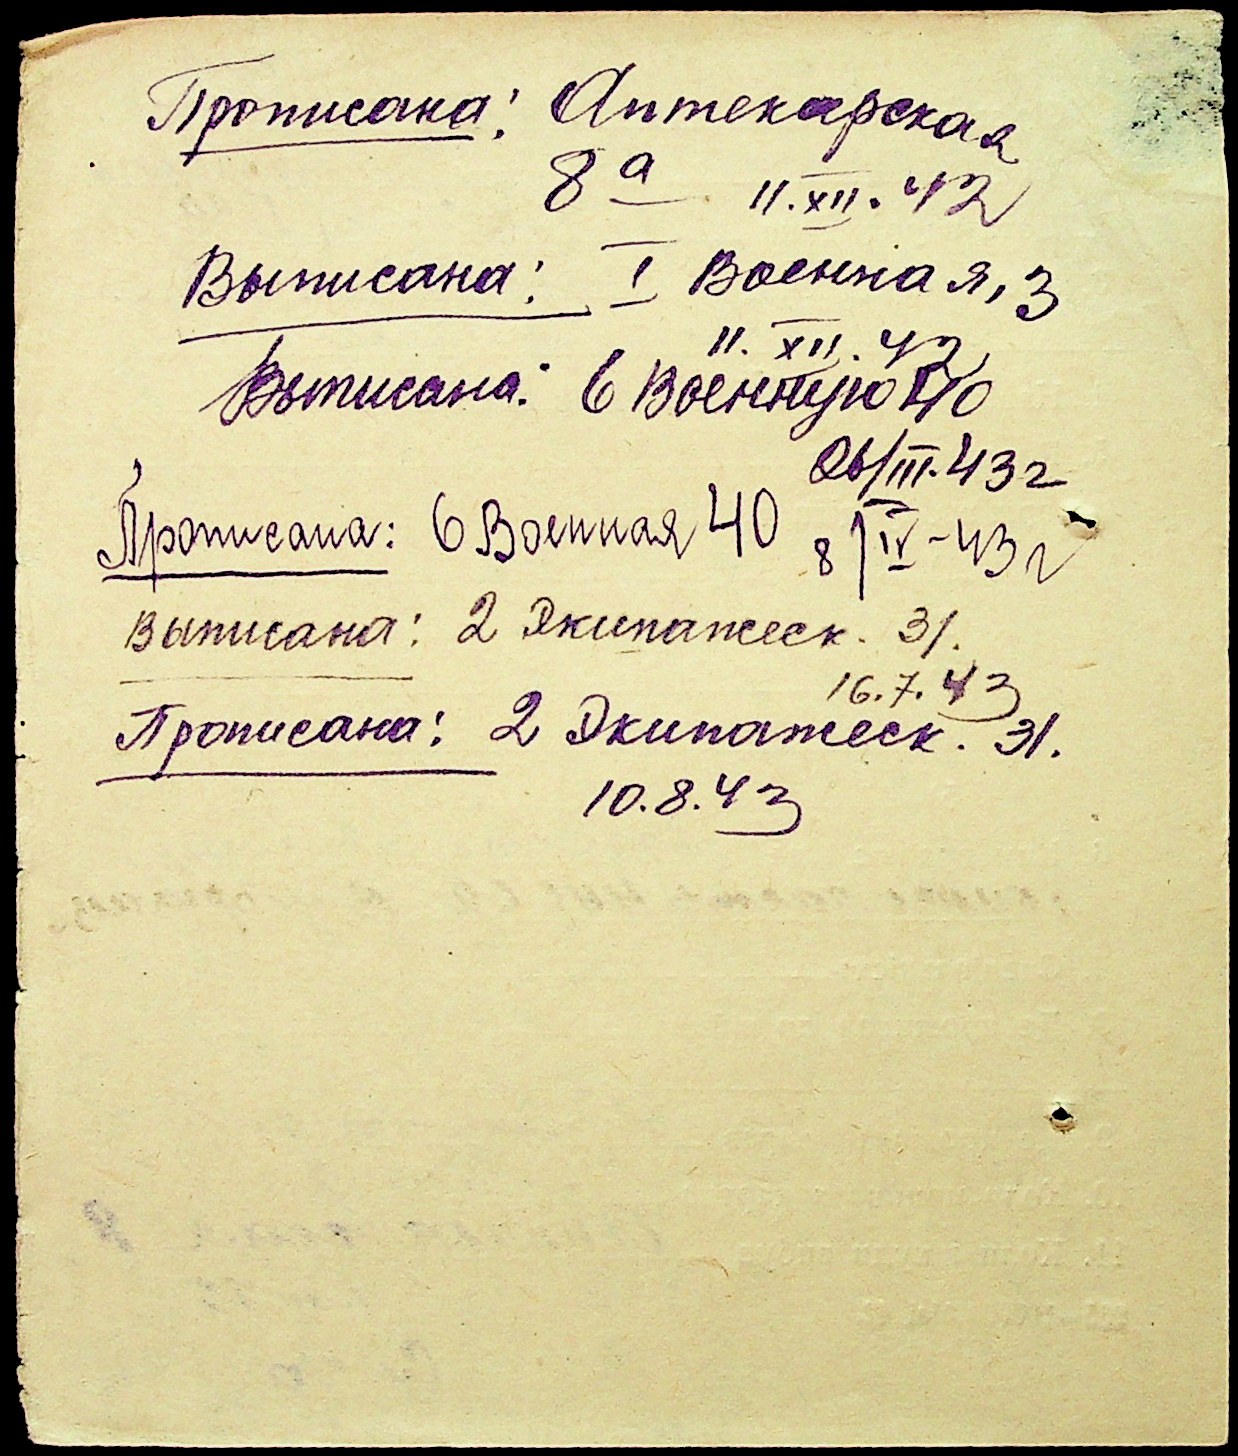 Прописана: Аптекарская
8а 11.XII.42
Выписана: I Военная, 3
11.XII.42
Выписана: 6 Военную 40
26/III.43г
Прописана: 6 Военная 40 8/IV-43г
Выписана: 2 Экипажеск. 31.
16.7.43
Прописана: 2 Экипажеск. 31.
10.8.43